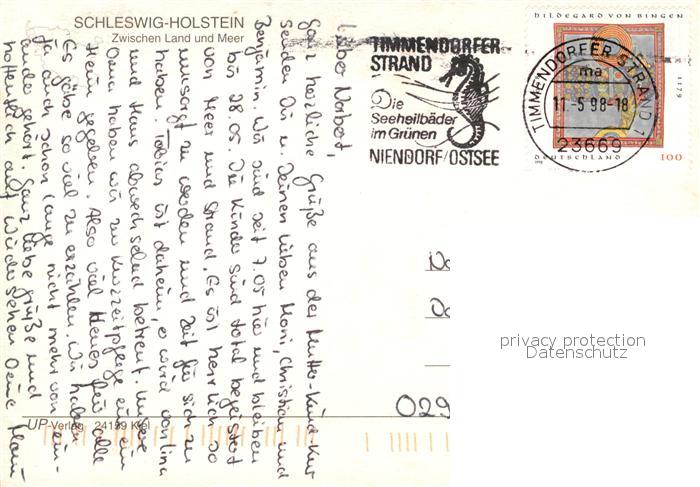 SCHLESWIG-HOLSTEIN
Zwischen Land und Meer
Lieber Norbert,
Ganz herzliche Grüße aus der Mutter-Kind-Kur
senden Dir u. Deinen lieben Moni, Christian und
Benjamin. Wir sind seit 7.05 hier und bleiben
bis 28.05. Die Kinder sind total begeistert
von Meer und Strand. Es ist herrlich so
umsorgt zu werden und Zeit für sich zu
haben. Tobias ist daheim, er wird von Tina
und Hans abwechselnd betreut. Unsere
Oma haben wir zur Kurzzeitpflege in ein
Heim gegeben. Also viel Neues für alle
Es gäbe so viel zu erzählen. Wir haben
ja auch schon lange nicht mehr von ein-
ander gehört. Ganz liebe Grüße und
hoffentlich auf Wiedersehen Deine
UP-Verlag 24159 Kiel
TIMMENDORFER
STRAND
Die
Seeheilbäder
im Grünen
NIENDORF/OSTSEE
TIMMENDORFER STRAND 1
ma
11.-5.98-18
23669
HILDEGARD VON BINGEN
1179
DEUTSCHLAND
100
029
privacy protection
Datenschutz